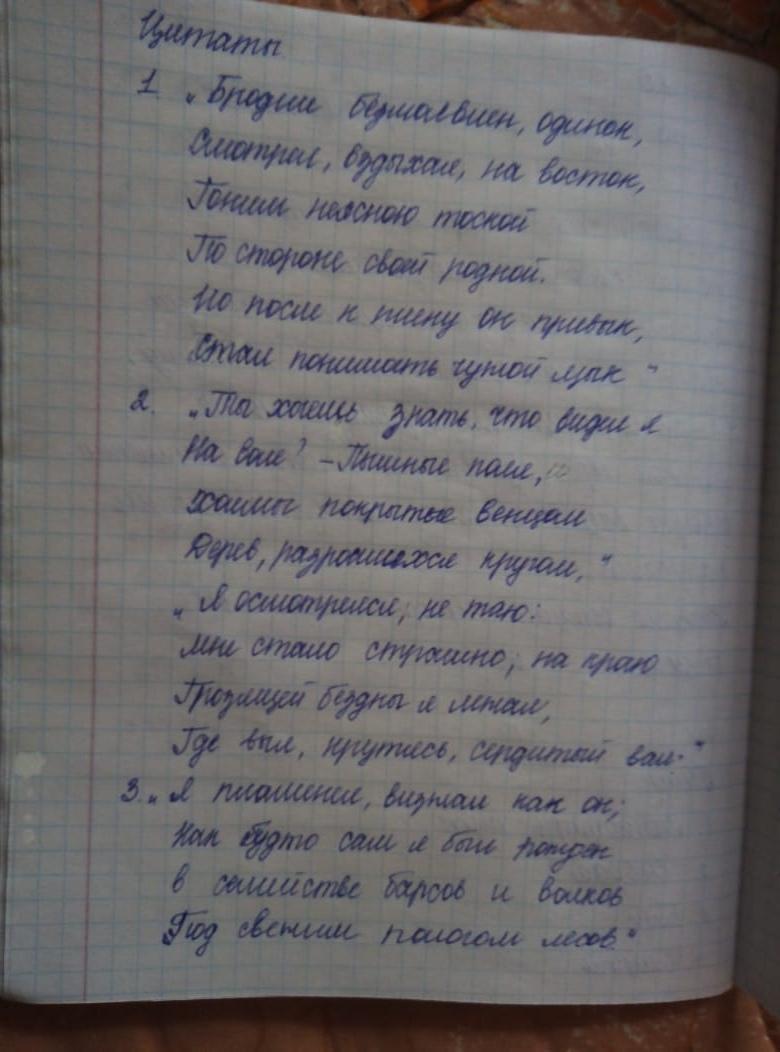 Цитаты
1. „Бродил безмолвен, одинок,
Смотрел, вздыхая, на восток,
Гоним неясною тоской
По стороне своей родной.
Но после к плену он привык,
Стал понимать чужой язык"
2. „Ты хочешь знать, что видел я
На воле? - Пышные поля,
Холмы покрытые венцом
Дерев, разросшихся кругом,"
„Я осмотрелся, не таю:
Мне стало страшно; на краю
Грозящей бездны я лежал,
Где выл, крутясь, сердитый вал."
3. „Я пламенел, визжал как он;
Как будто сам я был рожден
в семействе барсов и волков
Под свежим пологом лесов."